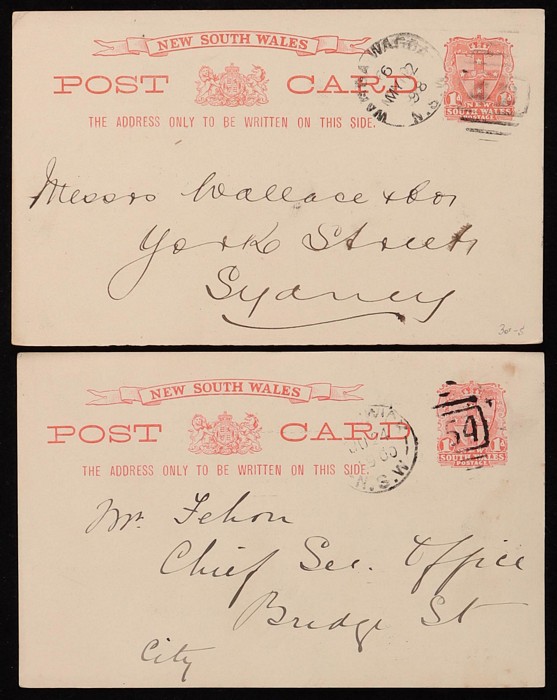 NEW SOUTH WALES
POST CARD
THE ADDRESS ONLY TO BE WRITTEN ON THIS SIDE.
WAGGA WAGGA
6
MY 22
88
N.S.W
1D
NEW
SOUTH WALES
POSTAGE
Messrs Wallace & Co
York Street
Sydney
30-5
NEW SOUTH WALES
POST CARD
THE ADDRESS ONLY TO BE WRITTEN ON THIS SIDE.
N.S.W
54
1D
SOUTH WALES
POSTAGE
Mr. Fehon
Chief Sec. Office
Bridge St
City